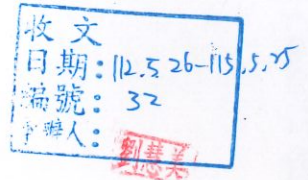 收文
日期：112.5.26-115.5.25
編號：32
辦人：
劉慧美